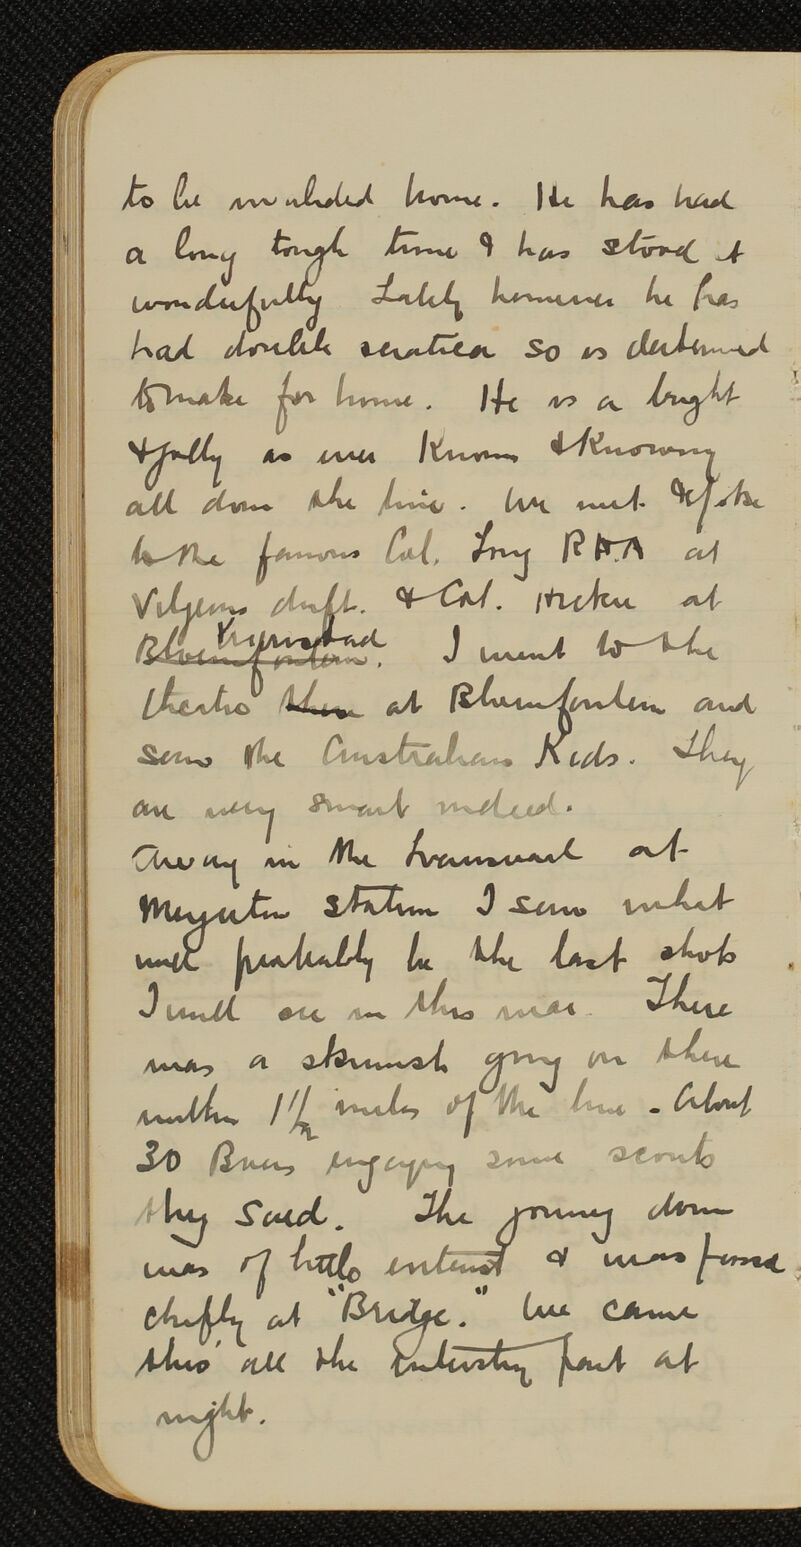 to be invalided home. He has had
a long tough time & has stood it
wonderfully Lately however he has
had double sciatica so is determined
to make for home. He is a bright
& jolly as ever known & knowing
all down the line. We met & spoke
to the famous Col. Long R.H.A at
Viljeons drift. & Col. Hickie at
Kroonstad
Bloemfontein. I went to the
theatre there at Bloemfontein and
saw the Australian Kids. They
are very smart indeed.
Away in the Transvaal at
Meyerton station I saw what
will probably be the last shots
I will see in this war. There
was a skirmish going on there
within 1 1/2 miles of the line - About
30 Boers engaging some scouts
they said. The journey down
was of little interest & was passed
chiefly at "Bridge." We came
thro' all the interesting part at
night.